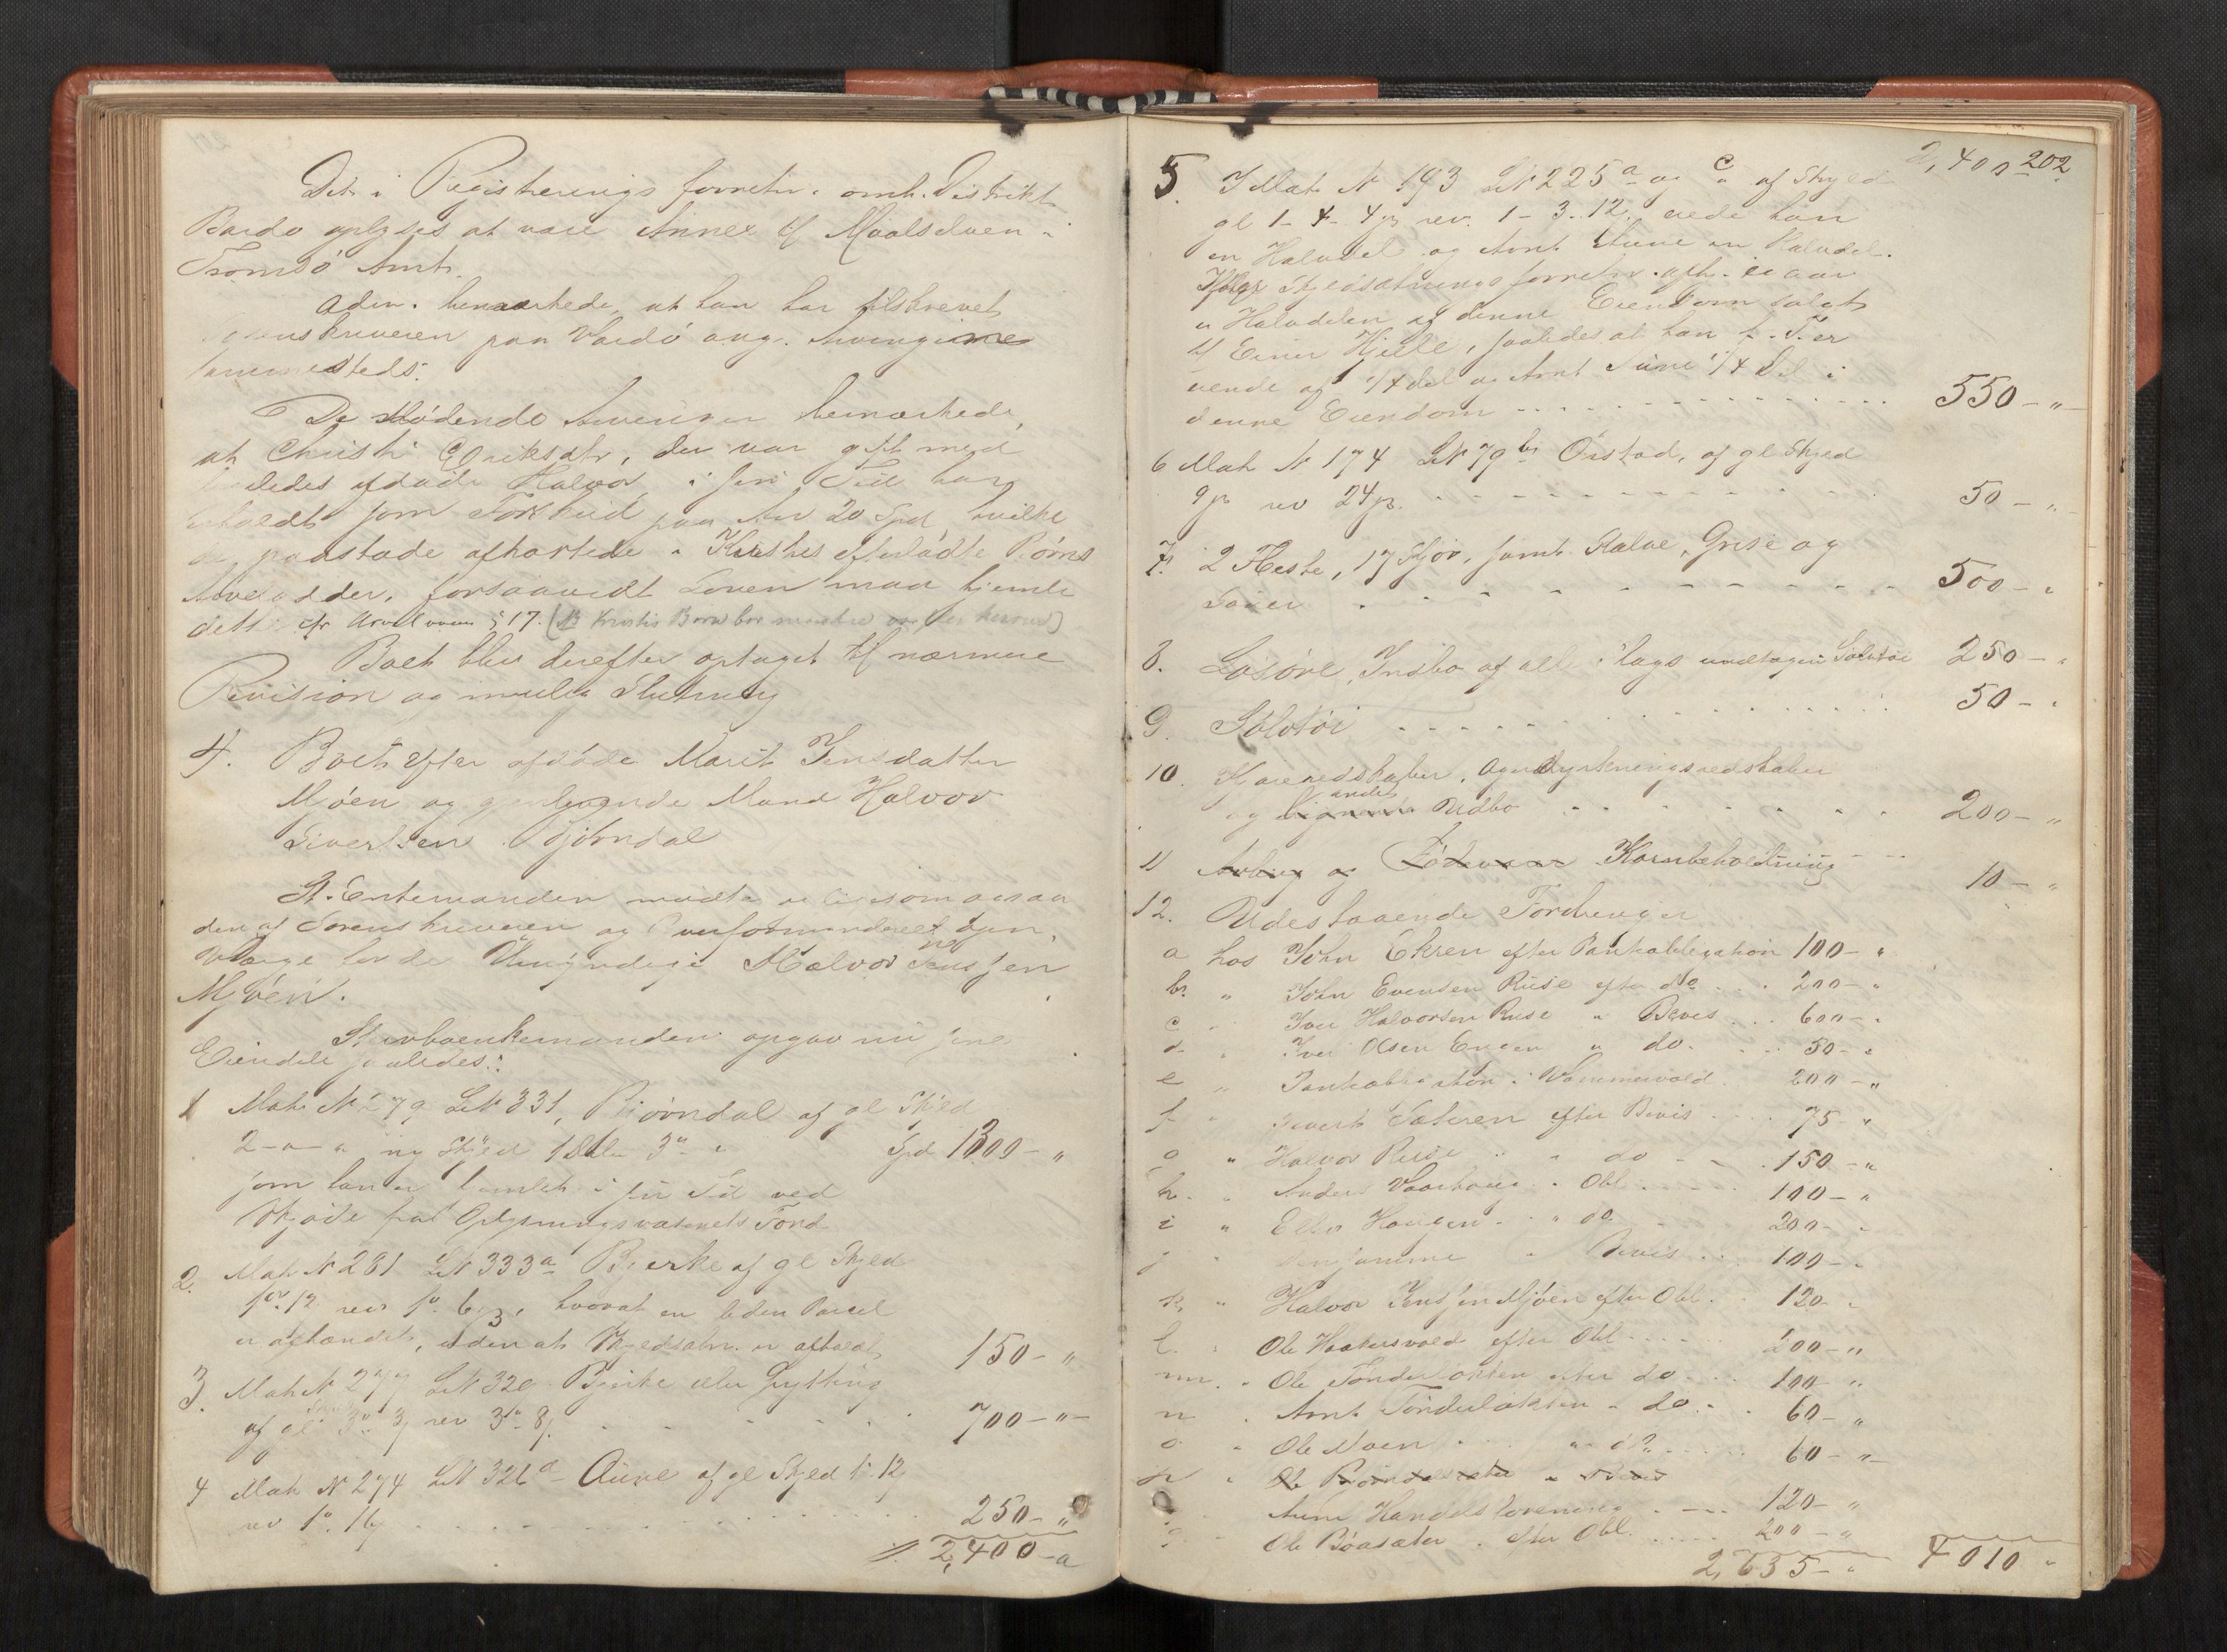 Det i Registrerings forretn. omh. Distrikt
Bardo oplyses at være Annex til Maalselven i
Tromsö Amt.
Adm. bemærkede, at han har tilskrevet
Sorenskriveren paa Vardö ang. Arvingerne
sammesteds.
De mødende Arvinger bemærkede,
at Christi Eriksdtr, der var gift med
afdöde Halvor i sin Tid har
erholdt som Forskud paa Arv 20 Spd, hvilke
de paastode afkortede i Kristis efterladte Börns
Arvelodder, forsaavidt Loven maa hjemle
dette cfr Arveloven § 17. (NB Kristis Börn bor
Boet blev derefter optaget til nærmere
Revision og mulig Slutning
4. Boet efter afdöde Marit Jensdatter
Mjöen og gjenlevende Mand Halvor
Sivertsen Bjørndal
St. Enkemanden mødte ligesom ogsaa
den af Sorenskriveren og Overformynderiet opn.
Værge for de Umyndige Halvor Jenssen
Mjöen.
Stervboenkemanden opgav nu sine
Eiendele saaledes:
1 Mat. N 279 LN 331, Bjørndal af gl Skjld
2 - " - " ny Skjld 1 Dlr 3 " " Spd 1300 - "
som han er hjemlet i sin Tid ved
Skjøde fra Oplysningsvæsenets Fond
2. Mat N 281 LN 333a Bjerke af gl Skjld
1 " 12 rev 1 " 6 β, hvoraf en liden Parcel
er afhændet, uden at Skyldsætn. er afholdt 150 - "
3. Mat N 277 LN 329 Bjerke eller Lytting
af gl Skyld 3 " 3 rev 3 " 8 . . . 700 - " -
4 Mat N 274 LN 326a Aune af gl Skjld 1 " 12
rev 1 " 16 . . . 250 - "
2,400 - "
2,400 202
5. Mat N 193 LN 225a og c af Skyld
gl 1 - 4 - 4 β rev. 1 - 3 - 12, eiede han
en Halvdel og Arnt Aune en Halvdel.
Ifølge Skyldsætningsforretn. afh. i aar
er Halvdelen af denne Eiendom solgt
til Einer Hjelle, saaledes at han p. T. er
eiende af 1/4 del og Arnt Aune 1/4 Del i
denne Eiendom . . . 550 - " -
6 Mat N 174 LN 79 b Örstad, af gl Skjld
9 β rev 24 β . . . 50 - "
7. 2 Heste, 17 Kjör, samt Kalve, Grise og
Souer . . . 500 - "
8. Lösöre, Indbo af alle Slags undtagen Sölvtöi 250 - "
9. Sölvtöi . . . 50 - "
10. Kjøreredskaber, Agerdyrkningsredskaber
og lignende andet Udbo . . . 200 - "
11 Avling og Födevarer Kornbeholdning . . . 10 - "
12. Udestaaende Fordringer
a hos John Ekren efter Pantobligation 100 - "
b. " John Evensen Ruse efter do . . . 200 - "
c " Iver Halvorsen Ruse " Bevis . . . 600 - "
d " Iver Olsen Engen " do . . . 50 - "
e " Pantobligation i Wammervold 200 - "
f " Sivert Sæteren efter Bevis . . . 75 - "
g " Halvor Ruse " do . . . 150 - "
h. " Anders Vaarhaug " Obl . . . 100 - "
i " Haugen " do . . . 200 - "
j " den samme " Bevis . . . 100 - "
k " Halvor Jenssen Mjöen efter Obl . . . 120 - "
l. " Ole Haakersvold efter Obl . . . 200 - "
m. " Ole Tønderlökken efter do . . . 100 - "
n " Arnt Tønderlökken " do . . . 60 - "
o " Ole Moen . . . " do . . . 60 - " -
p " Ole Bjørndalsæter " Bevis
Aune Handelsforening . . . 120 - "
q " Ole Böasæter . efter Obl. . . . 200 - "
2,635 - " 4010 "